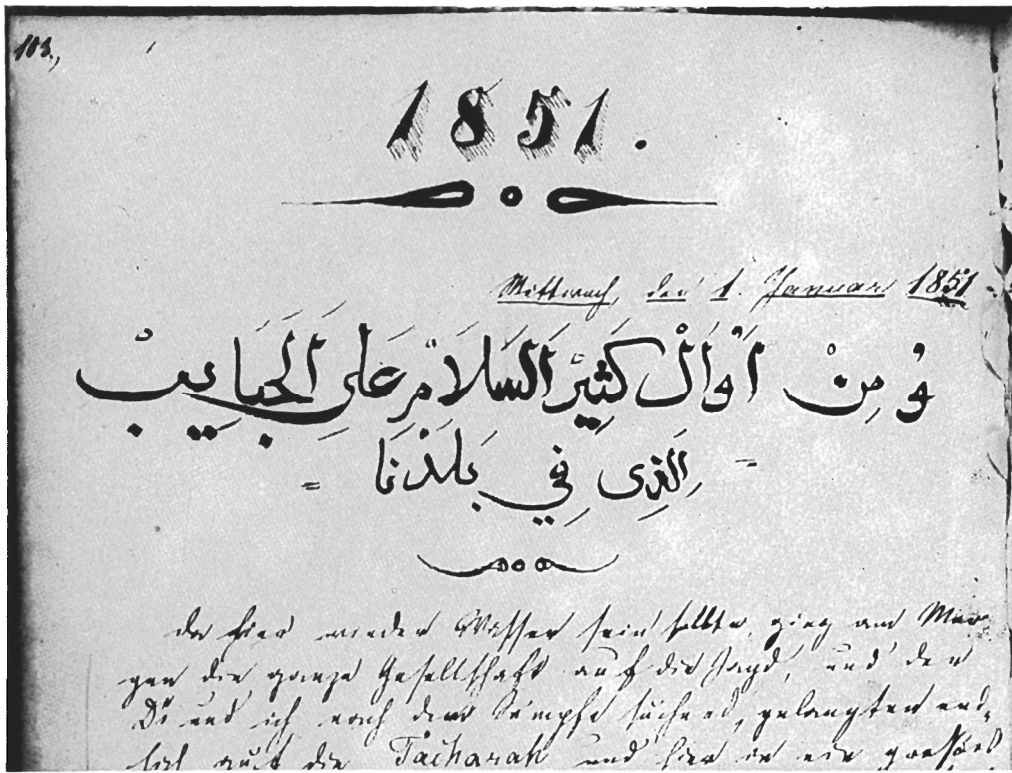 103.,
1851.
Mittwoch, den 1. Januar 1851.
وُمِنْ اَوْاَلْ كَثِيْر اَلسَلَامْ عَلَى اَلْحَبَايِبْ
اَلَذِى فِي بَلَدْنَا
da hier wieder Wasser sein sollte, ging am Mor-
gen die ganze Gesellschaft auf die Jagd, und der
und ich nach dem Sumpfe suchend, gelangten end-
lich auf die Tacharah und hier in ein großes